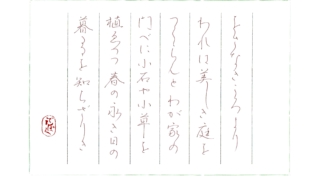 をさなきころより
われは美しき庭を
つくらんとわが家の
門べに小石や小草を
植ゑつゝ春の永き日の
暮るるを知らざりき